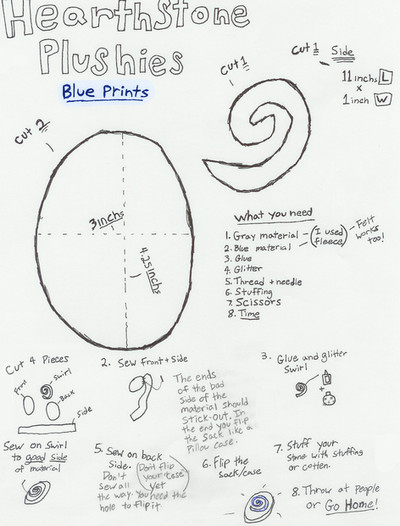 HearthStone
Plushies
Blue Prints
Cut 1
Cut 1 Side
11 inchs L
x
1 inch W
Cut 2
3 inchs
4.25 inchs
What you need
1. Gray material - (I used
2. Blue material - fleece)
Felt
works
too!
3. Glue
4. Glitter
5. Thread + needle
6. Stuffing
7. Scissors
8. Time
Cut 4 Pieces
Front
Swirl
Back
Side
2. Sew front + side
The ends
of the bad
side of the
material should
Stick-out. In
the end you flip
the sack like a
Pillow case.
3. Glue and glitter
swirl
Sew on Swirl
to good side
of material
5. Sew on back
Side.
Don't
sew all
the way. You need the
hole to flip it
(Don't flip
your case
yet
6. Flip the
sack/case
7. Stuff your
Stone with stuffing
or cotten.
8. Throw at People
or Go Home!